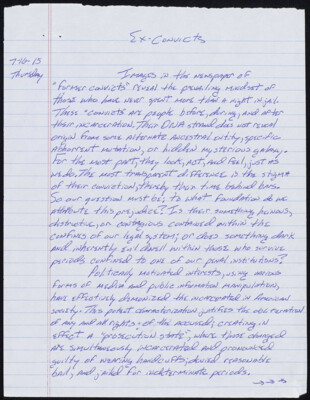 Ex-Convicts
7-16-15
Thursday
Images in the newspaper of
"former convicts" reveal the prevailing mindset of
those who have never spent more than a night in jail.
These "convicts" are people before, during, and after
their incarceration. Their DNA strand does not reveal
origin from some alternate ancestral entity, specific
abhorrent mutation, or hidden mysterious galaxy.
For the most part, they look, act, and feel, just as
we do. The most transparent difference is the stigma
of their conviction, thereby their time behind bars.
So our question must be; to what foundation do we
attribute this prejudice? Is their something heinous,
destructive, or contagious contained within the
confines of our legal system; or does something dark
and inherently evil dwell within those who service
periods confined to one of our penal institutions?
Politically motivated interests, using various
forms of media and public information manipulation,
have effectively demonized the incarcerated in American
society. This potent characterization justifies the obliteration
of any and all rights - of the accused; creating in
effect a "prosecution state", where those charged
are simultaneously incarcerated and pronounced
guilty of wearing handcuffs; denied reasonable
bail; and jailed for indeterminate periods.
→→→